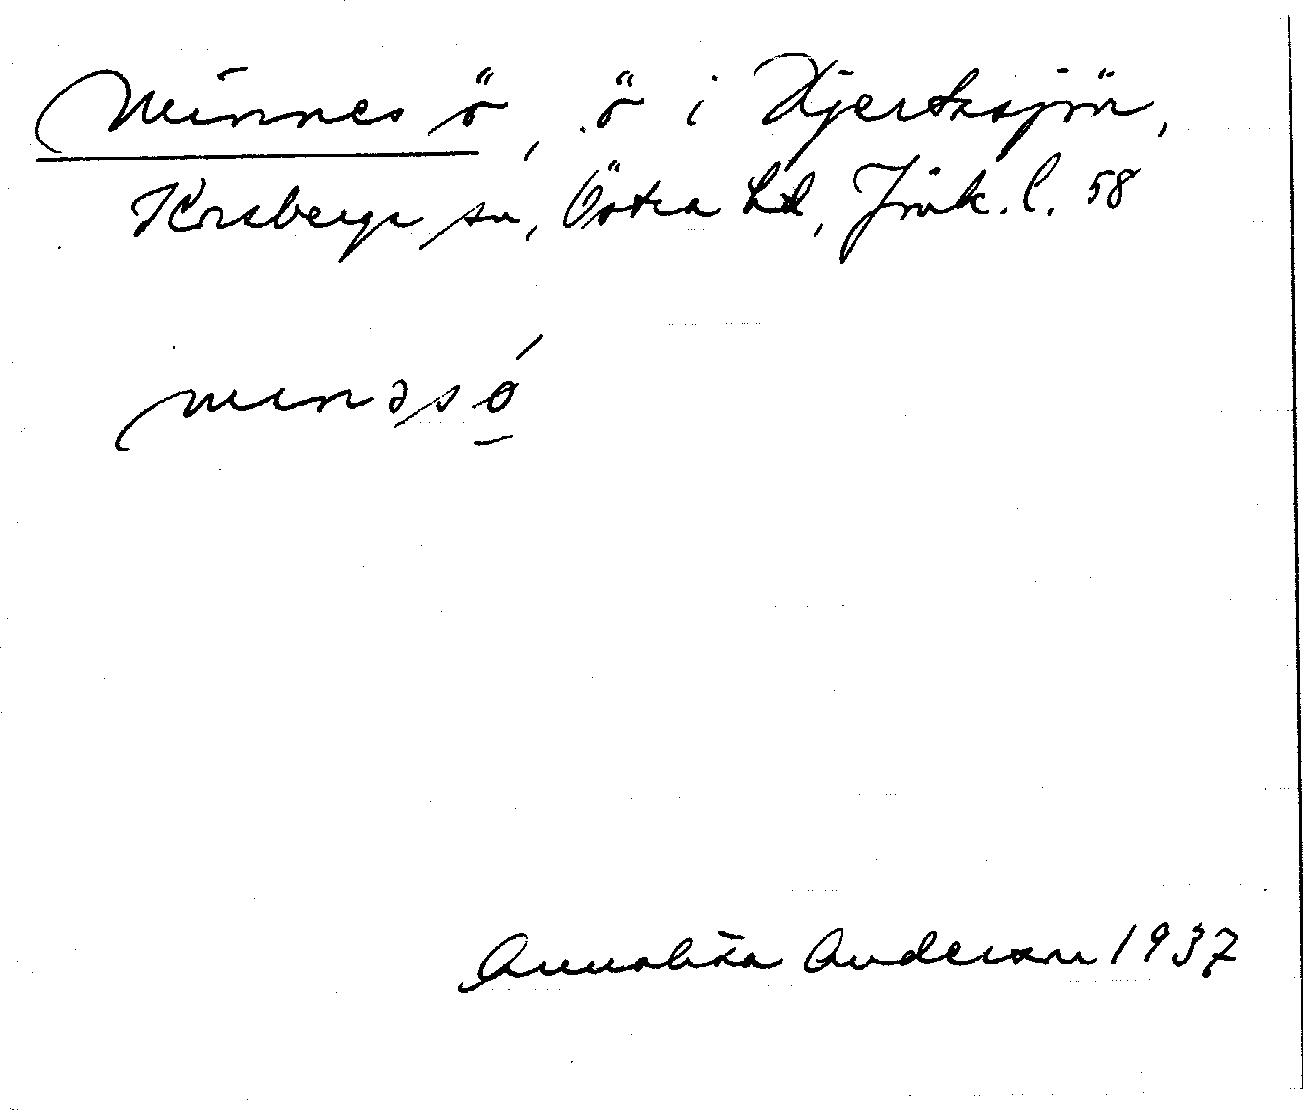 Minnes ö, ö i Hjertasjön,
Korsberga sn, Östra hd, Jönk. l. 58
minəsǿ
Annalisa Anderson 1937